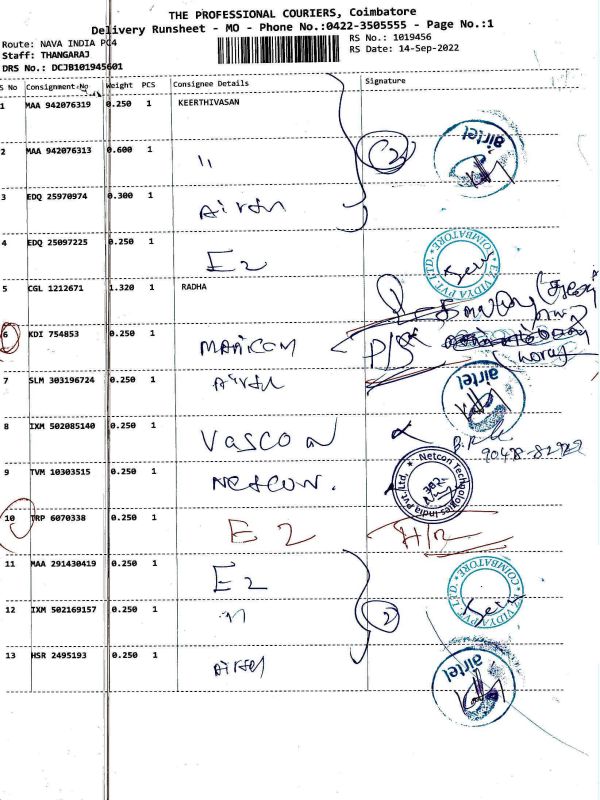 THE PROFESSIONAL COURIERS, Coimbatore
Delivery Runsheet - MO - Phone No.:0422-3505555 - Page No.:1
Route: NAVA INDIA PC4
RS No.: 1019456
Staff: THANGARAJ
RS Date: 14-Sep-2022
DRS No.: DCJB101945601
S No Consignment No Weight PCS Consignee Details Signature
1 MAA 942076319 0.250 1 KEERTHIVASAN
2 MAA 942076313 0.600 1 "
airtel
3 EDQ 25970974 0.300 1 Airtel
4 EDQ 25097225 0.250 1 E2
EZ VIDYA PVT. LTD. COIMBATORE
5 CGL 1212671 1.320 1 RADHA
6 KDI 754853 0.250 1
7 SLM 303196724 0.250 1 Airtel
airtel
8 IXM 502085140 0.250 1 VASCON
9 TVM 10303515 0.250 1 Netcon.
Netcon Technologies India Pvt. Ltd.
10 TRP 6070338 0.250 1 E2 H/R
11 MAA 291430419 0.250 1 E2
EZ VIDYA PVT. LTD. COIMBATORE
12 IXM 502169157 0.250 1 " 2
13 HSR 2495193 0.250 1 Airtel
airtel